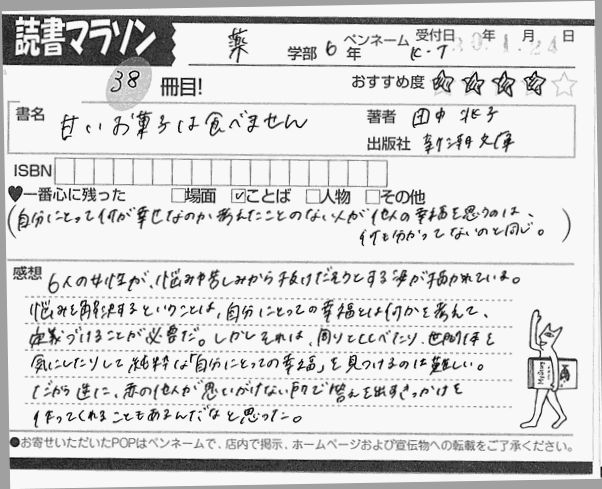 読書マラソン
薬 学部 6 年 ペンネーム K.T 受付日 30年 1月 24日
38 冊目!
おすすめ度 ★★★★☆
書名 甘いお菓子は食べません
著者 田中兆子
出版社 新潮文庫
ISBN
♥一番心に残った □場面 ☑ことば □人物 □その他
(自分にとって何が幸せなのか考えたことのない人が他人の幸福を思うのは、
何も分かってないのと同じ。)
感想 6人の女性が、悩みや苦しみから抜けだそうとする姿が描かれている。
悩みを解決するということは、自分にとっての幸福とは何かを考えて、
定義づけることが必要だ。しかしそれは、周りと比べたり、世間体を
気にしたりして純粋な「自分にとっての幸福」を見つけるのは難しい。
だから逆に、赤の他人が思いがけない所で答えを出すきっかけを
作ってくれることもあるんだなと思った。
●お寄せいただいたPOPはペンネームで、店内で掲示、ホームページおよび宣伝物への転載をご了承ください。